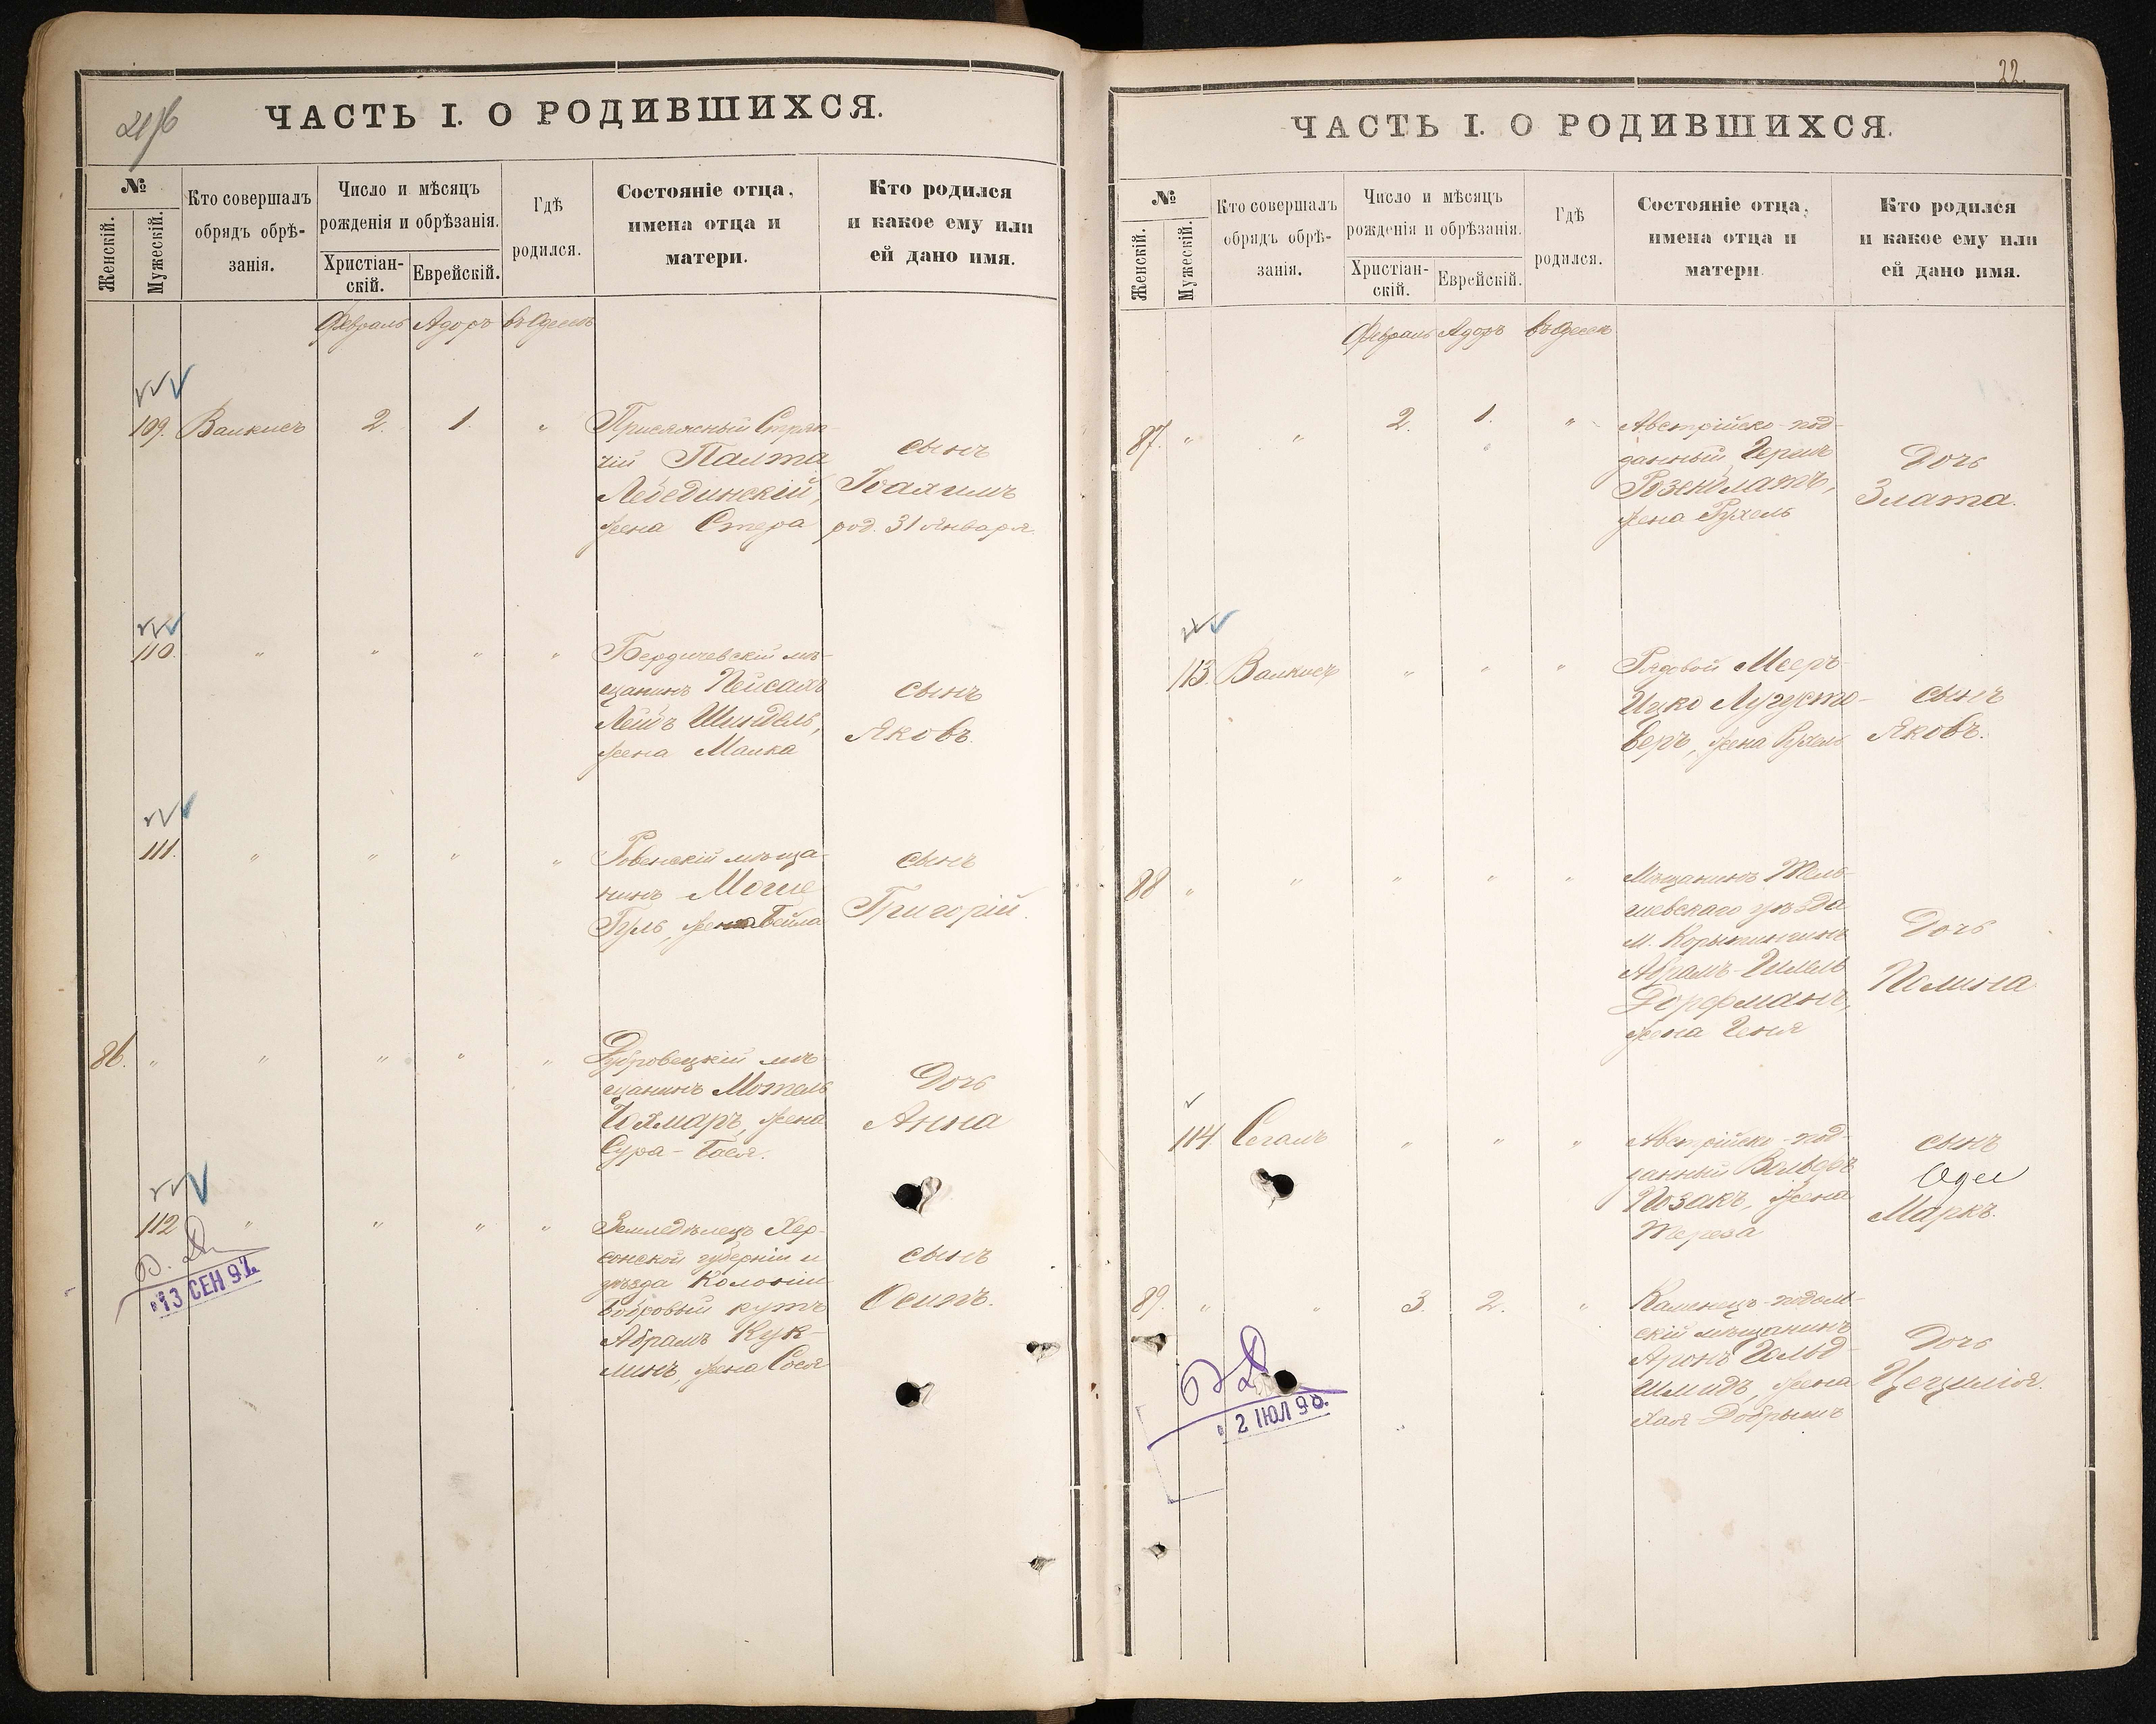 ЧАСТЬ I. О РОДИВШИХСЯ.
№
Женскій.
Мужескій.
Кто совершалъ
обрядъ обрѣ-
занія.
Число и мѣсяцъ
рожденія и обрѣзанія.
Христіан-
скій.
Еврейскій.
Гдѣ
родился.
Состояніе отца,
имена отца и
матери.
Кто родился
и какое ему или
ей дано имя.
Февраль Адоръ въ Одессѣ
109. Валкисъ 2. 1. "
Присяжный Стряп-
чій Палта
Лебединскій,
жена Стера
сынъ
Іоахимъ
род. 31 Января
110. " " " "
Бердичевскій мѣ-
щанинъ Пейсахъ
Лейбъ Шиндель,
жена Малка
сынъ
Яковъ.
111. " " " "
Ровенскій мѣща-
нинъ Моше
жена Бейла
сынъ
Григорій.
86. " " " " "
Дубровецкій мѣ-
щанинъ Мотель
жена
Сура - Бася.
Дочь
Анна
112 " " " "
Земледѣлецъ Хер-
сонской губерніи и
уѣзда Колоніи
Бобровый кутъ
Абрамъ Кук-
линъ, жена Сося
сынъ
Осипъ.
13 СЕН 97.
22.
ЧАСТЬ I. О РОДИВШИХСЯ.
№
Женскій.
Мужескій.
Кто совершалъ
обрядъ обрѣ-
занія.
Число и мѣсяцъ
рожденія и обрѣзанія.
Христіан-
скій.
Еврейскій.
Гдѣ
родился.
Состояніе отца,
имена отца и
матери.
Кто родился
и какое ему или
ей дано имя.
Февраль Адоръ въ Одессѣ
87. " " 2. 1. "
Австрійско-под-
данный Гершъ
Розенблатъ,
жена Рухель
Дочь
Злата.
113. Валкисъ " " "
Рядовой Мееръ-
Ицко Лугусто-
веръ, жена Рухель
сынъ
Яковъ.
88 " " " " "
Мѣщанинъ Тель-
шевскаго уѣзда
Абрамъ-Гилель
Дорфманъ,
жена Геня
Дочь
Полина
114 Сегалъ " " "
Австрійско-под-
данный Вольфъ
Позакъ, жена
Тереза
сынъ
Маркъ.
89. " " 3. 2. "
Каменецъ-подоль-
скій мѣщанинъ
Аронъ Гольд-
шмидъ, жена
Хая-Добрышъ
Дочь
Цецилія.
2 ІЮЛ 98.